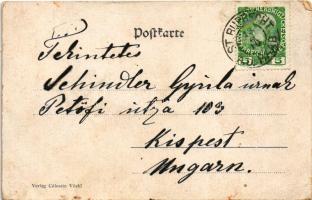 Postkarte
Tekintetes
Schindler Gyula urnak
Petőfi utza 103
Kispest
Ungarn.
ST. RUPRECHT
5 5
Verlag Cölestin Vözkl